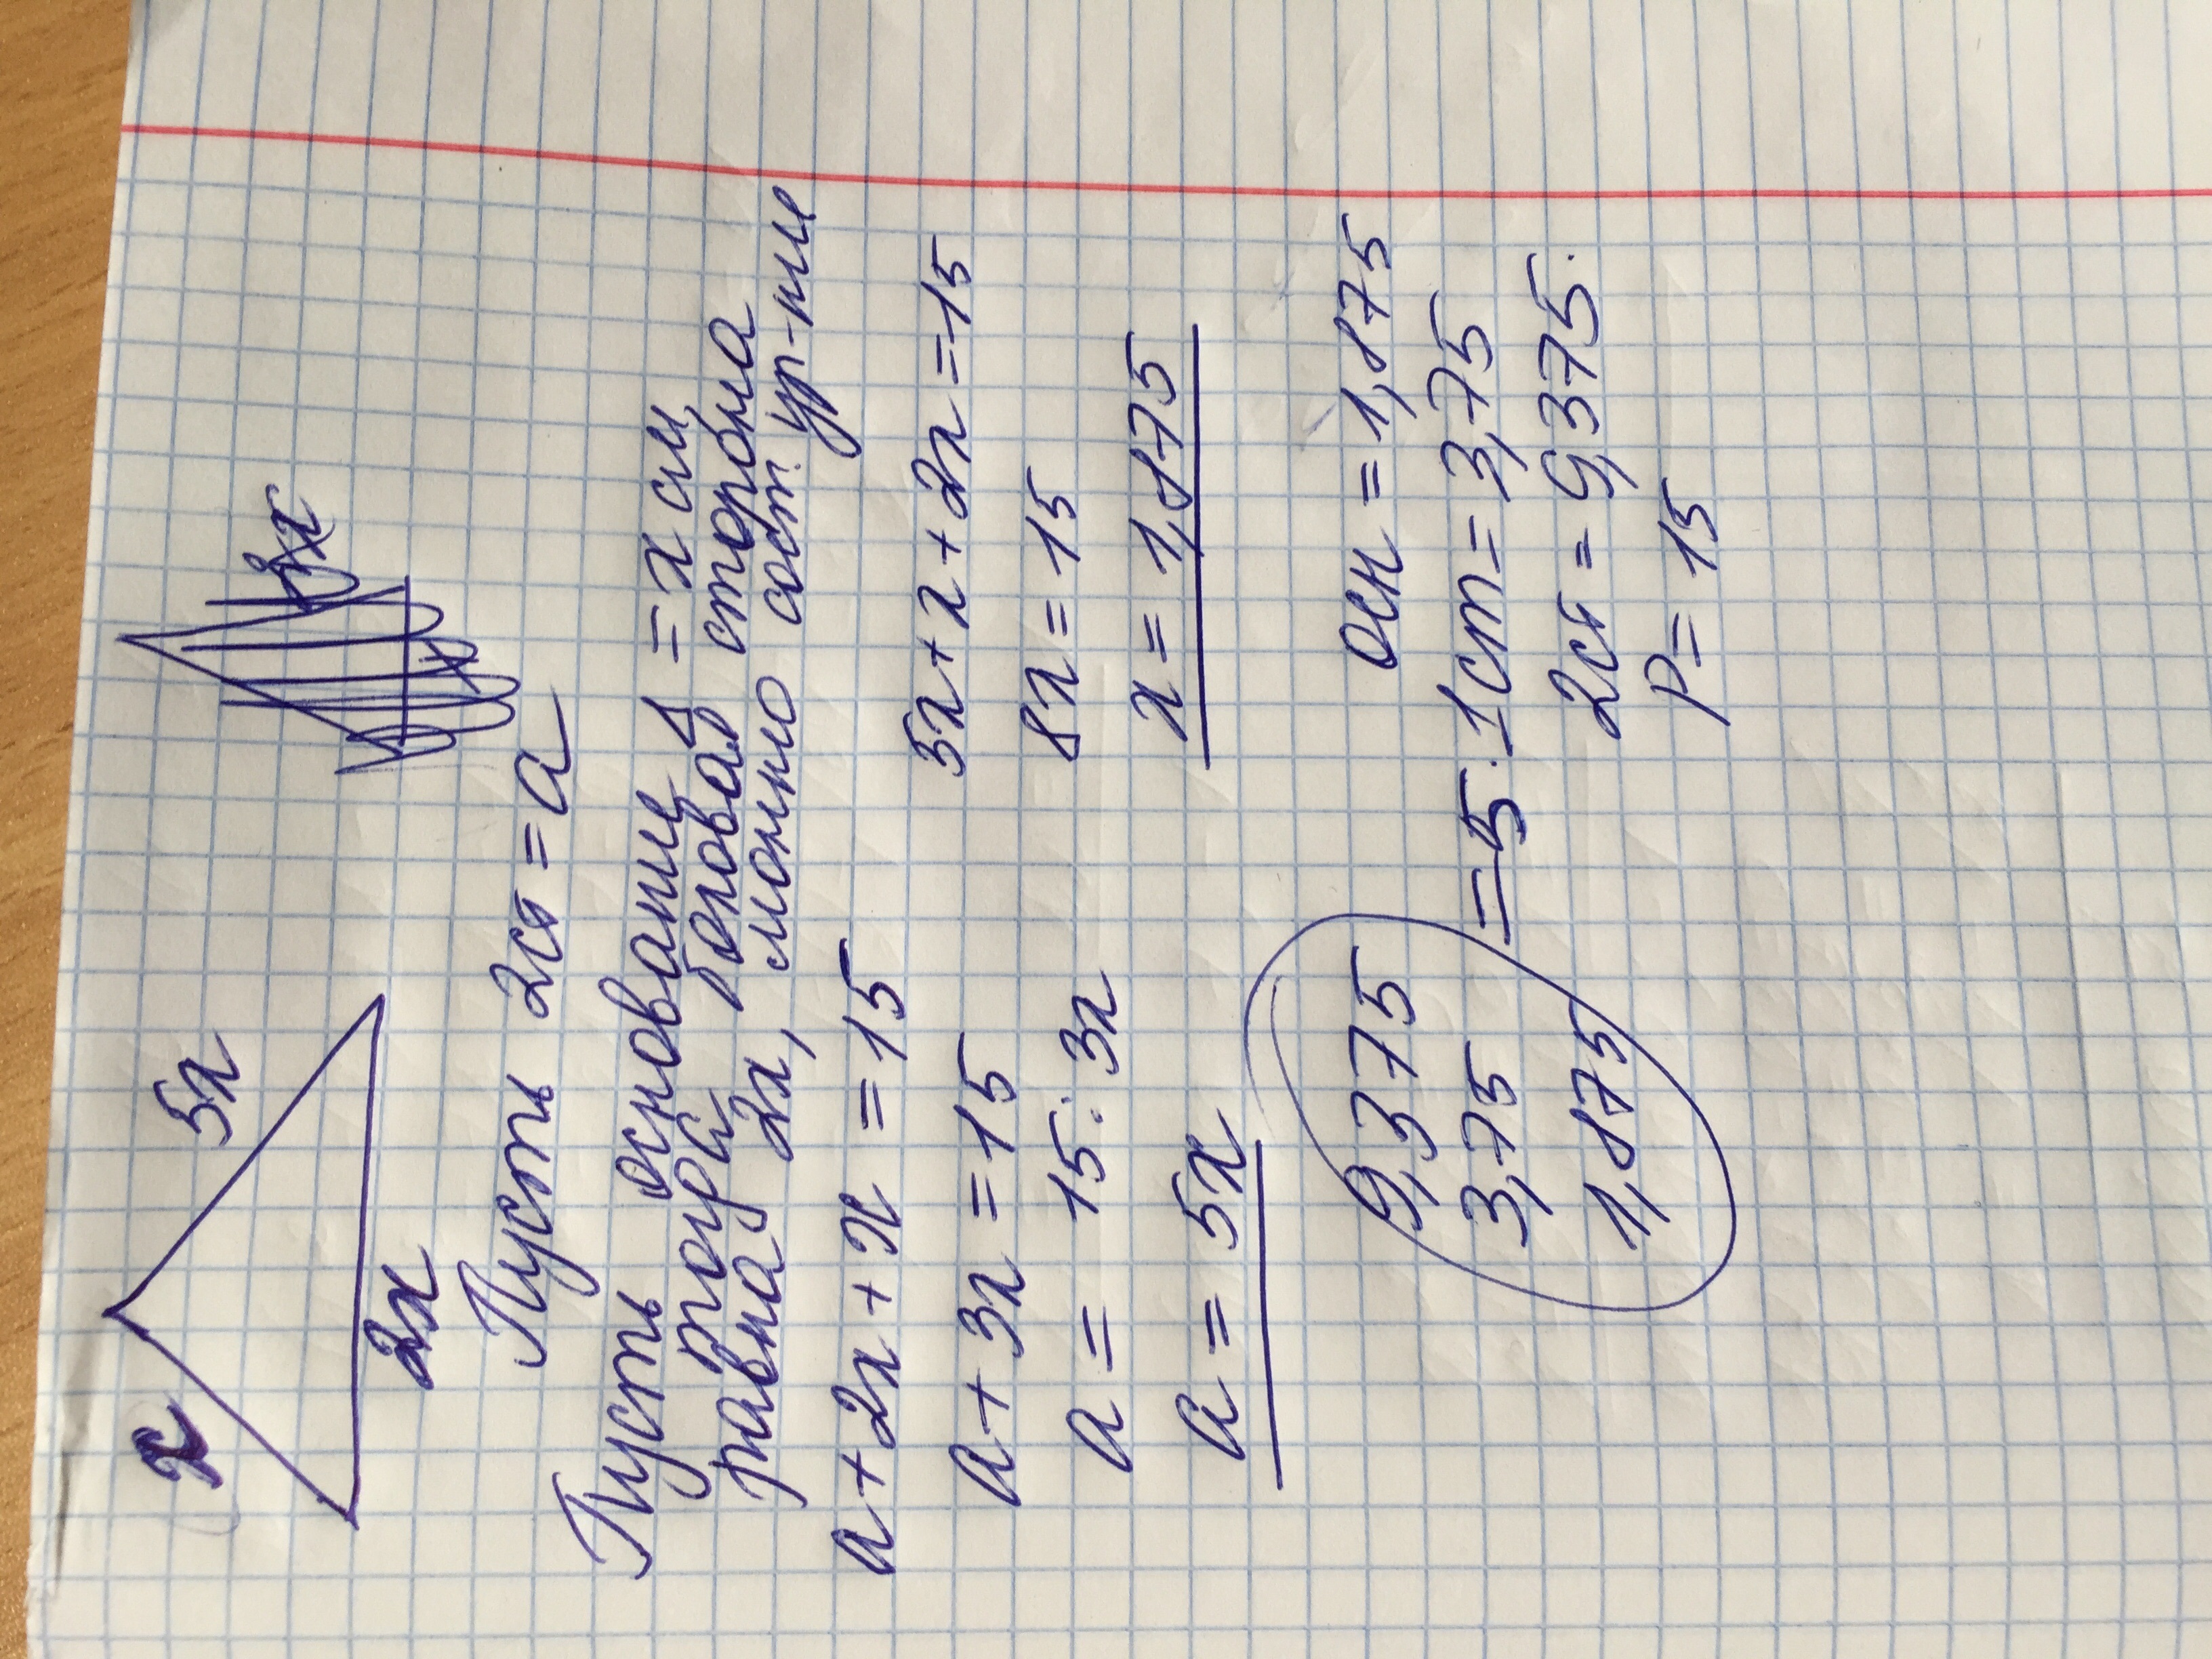 x 5x
2x
Пусть 2ст = a
Пусть основание = x см,
тогда боковая сторона
равна 2x, можно сост. ур-ние
a + 2x + x = 15
a + 3x = 15
a = 15 : 3x
a = 5x
5x + x + 2x = 15
8x = 15
x = 1,875
9,375
3,75 = 5.
1,875
осн = 1,875
1ст = 3,75
2ст = 9,375.
P = 15